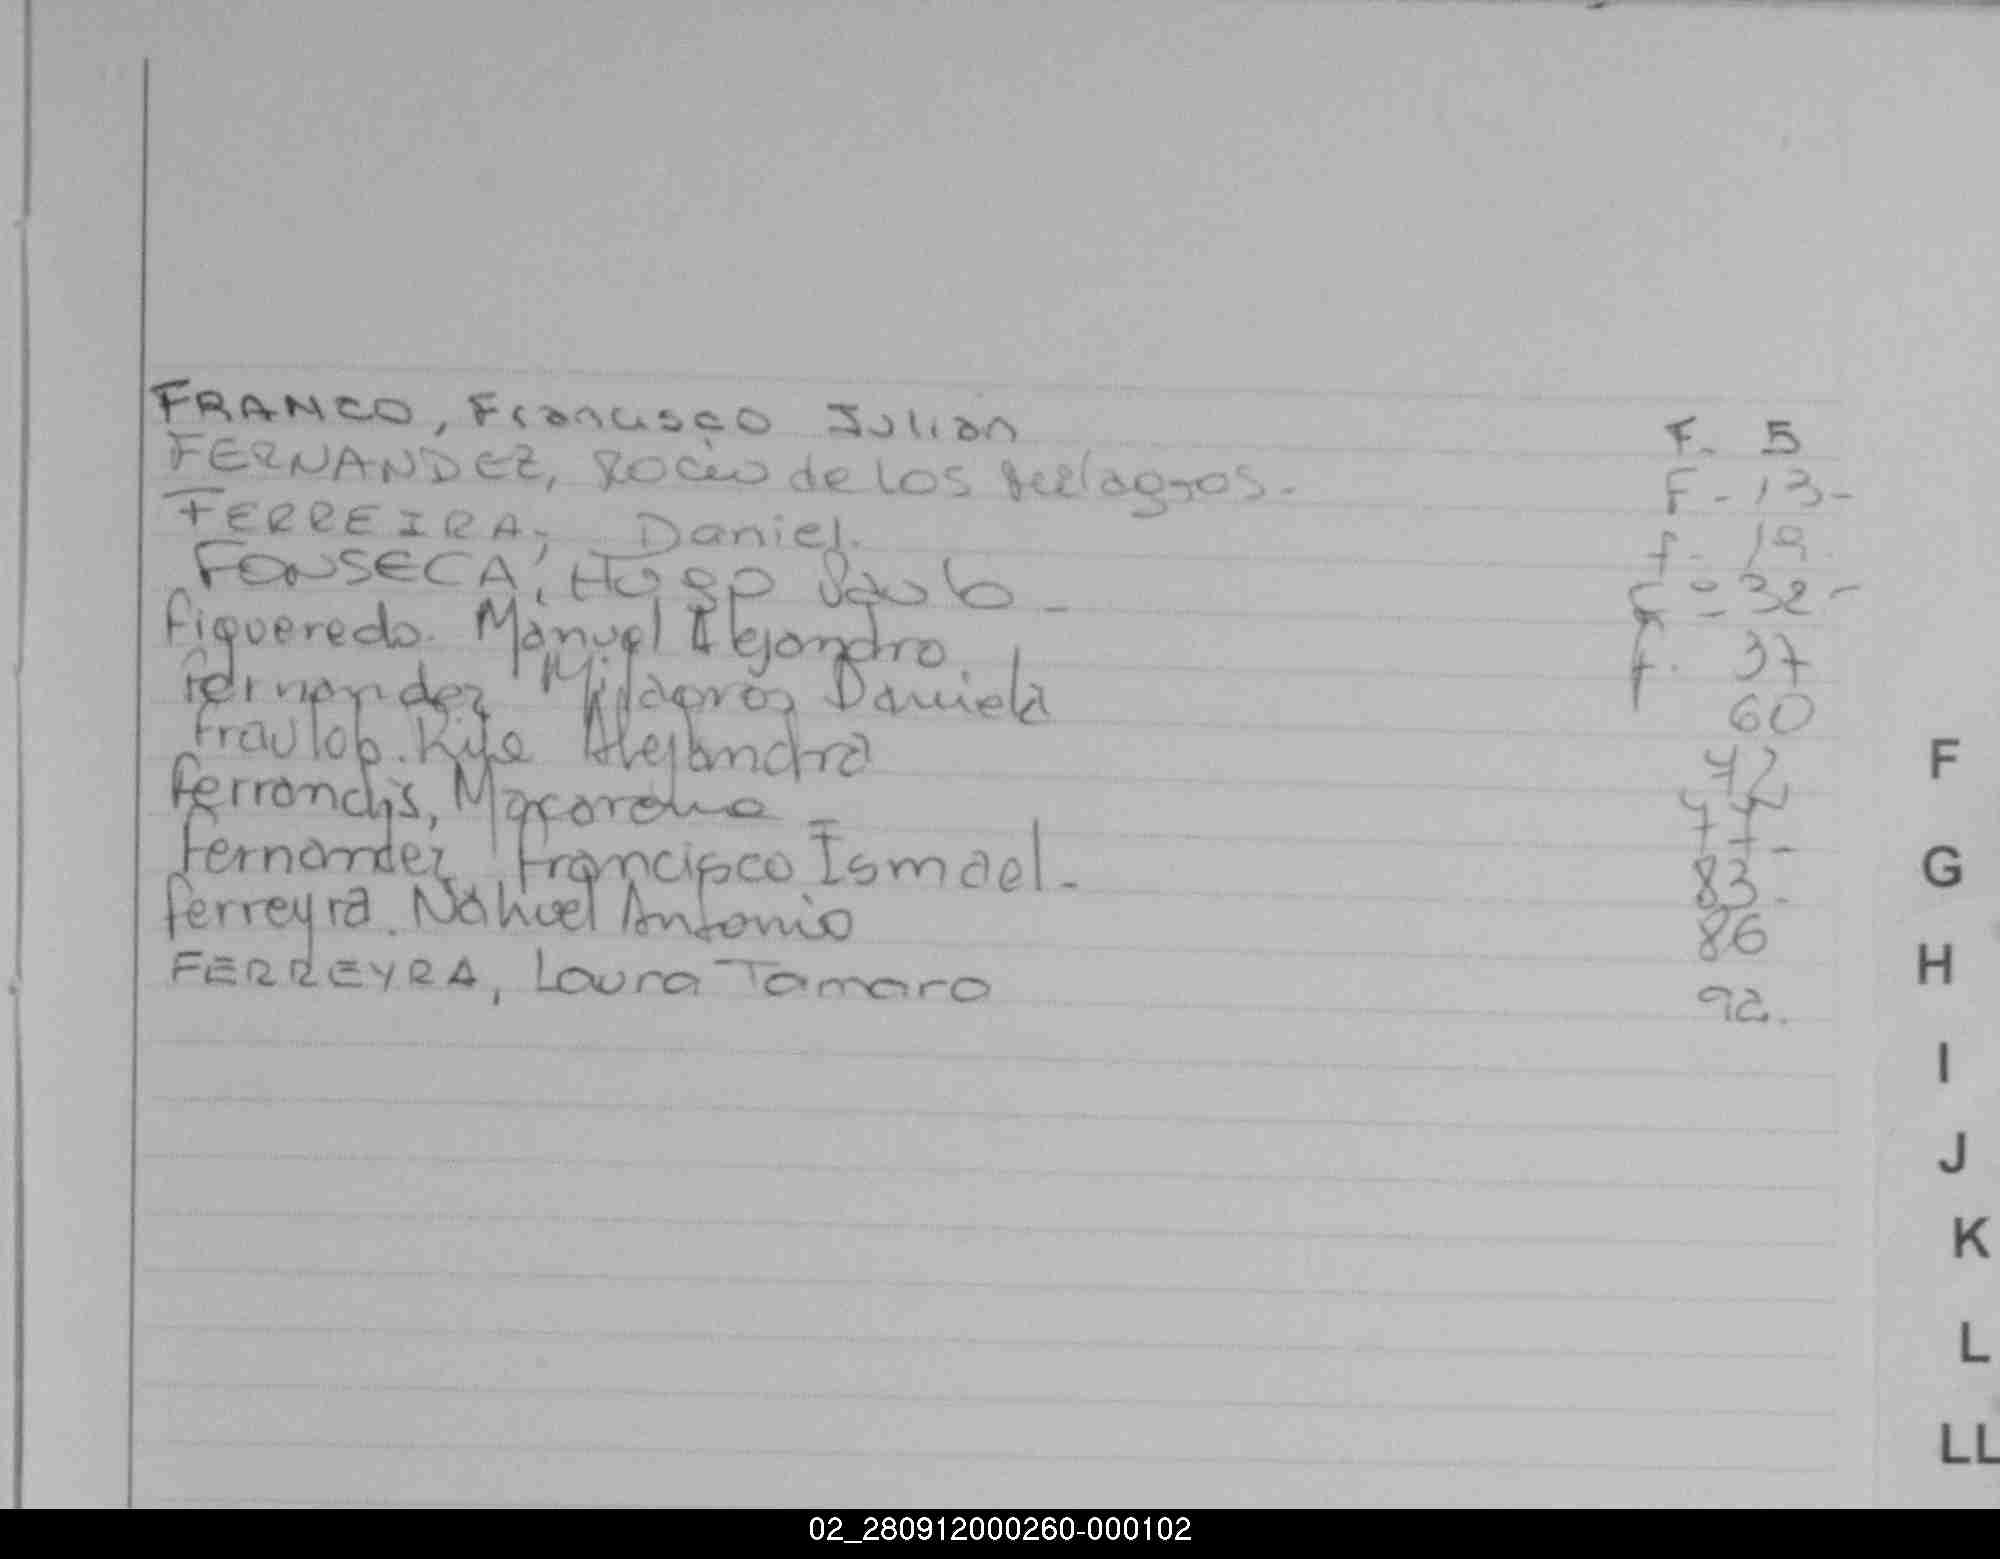 FRANCO, Francisco Julian F. 5
FERNANDEZ, Rocío de los Milagros. F. 13-
FERREIRA, Daniel. f. 19.
FONSECA, Hugo f. 32-
Figueredo. Manuel Alejandro f. 37
Fernandez Milagros Daniela 60
Alejandra 72
Ferrondis, Macarena 77-
Fernandez Francisco Ismael. 83-
Ferreyra. Nahuel Antonio 86
FERREYRA, Laura Tamara 92.
F
G
H
I
J
K
L
LL
02_280912000260-000102